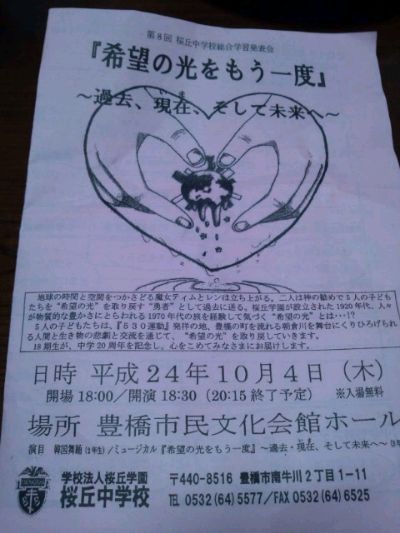 第8回 桜丘中学校総合学習発表会
『希望の光をもう一度』
～過去、現在、そして未来へ～
いま
地球の時間と空間をつかさどる魔女ティムとレンは立ち上がる。二人は神の勧めで5人の子ども
たちを“希望の光”を取り戻す“勇者”として過去に送る。桜丘学園が設立された1920年代、人々
が物質的な豊かさにとらわれる1970年代の旅を経験して気づく“希望の光”とは・・・!?
5人の子どもたちは、『530運動』発祥の地、豊橋の町を流れる朝倉川を舞台にくりひろげられ
る人間と生き物の悲劇と交流を通じて、“希望の光”を取り戻していきます。
18期生が、中学20周年を記念し、心をこめてみなさまにお届けします。
日時 平成24年10月4日（木）
開場 18:00／開演 18:30（20:15 終了予定） ※入場無料
場所 豊橋市民文化会館ホール
演目 韓国舞踊(2年生)／ミュージカル『希望の光をもう一度』～過去・現在、そして未来へ～
学校法人桜丘学園
桜丘中学校
〒440-8516 豊橋市南牛川2丁目1-11
TEL 0532(64)5577/FAX 0532(64)6525